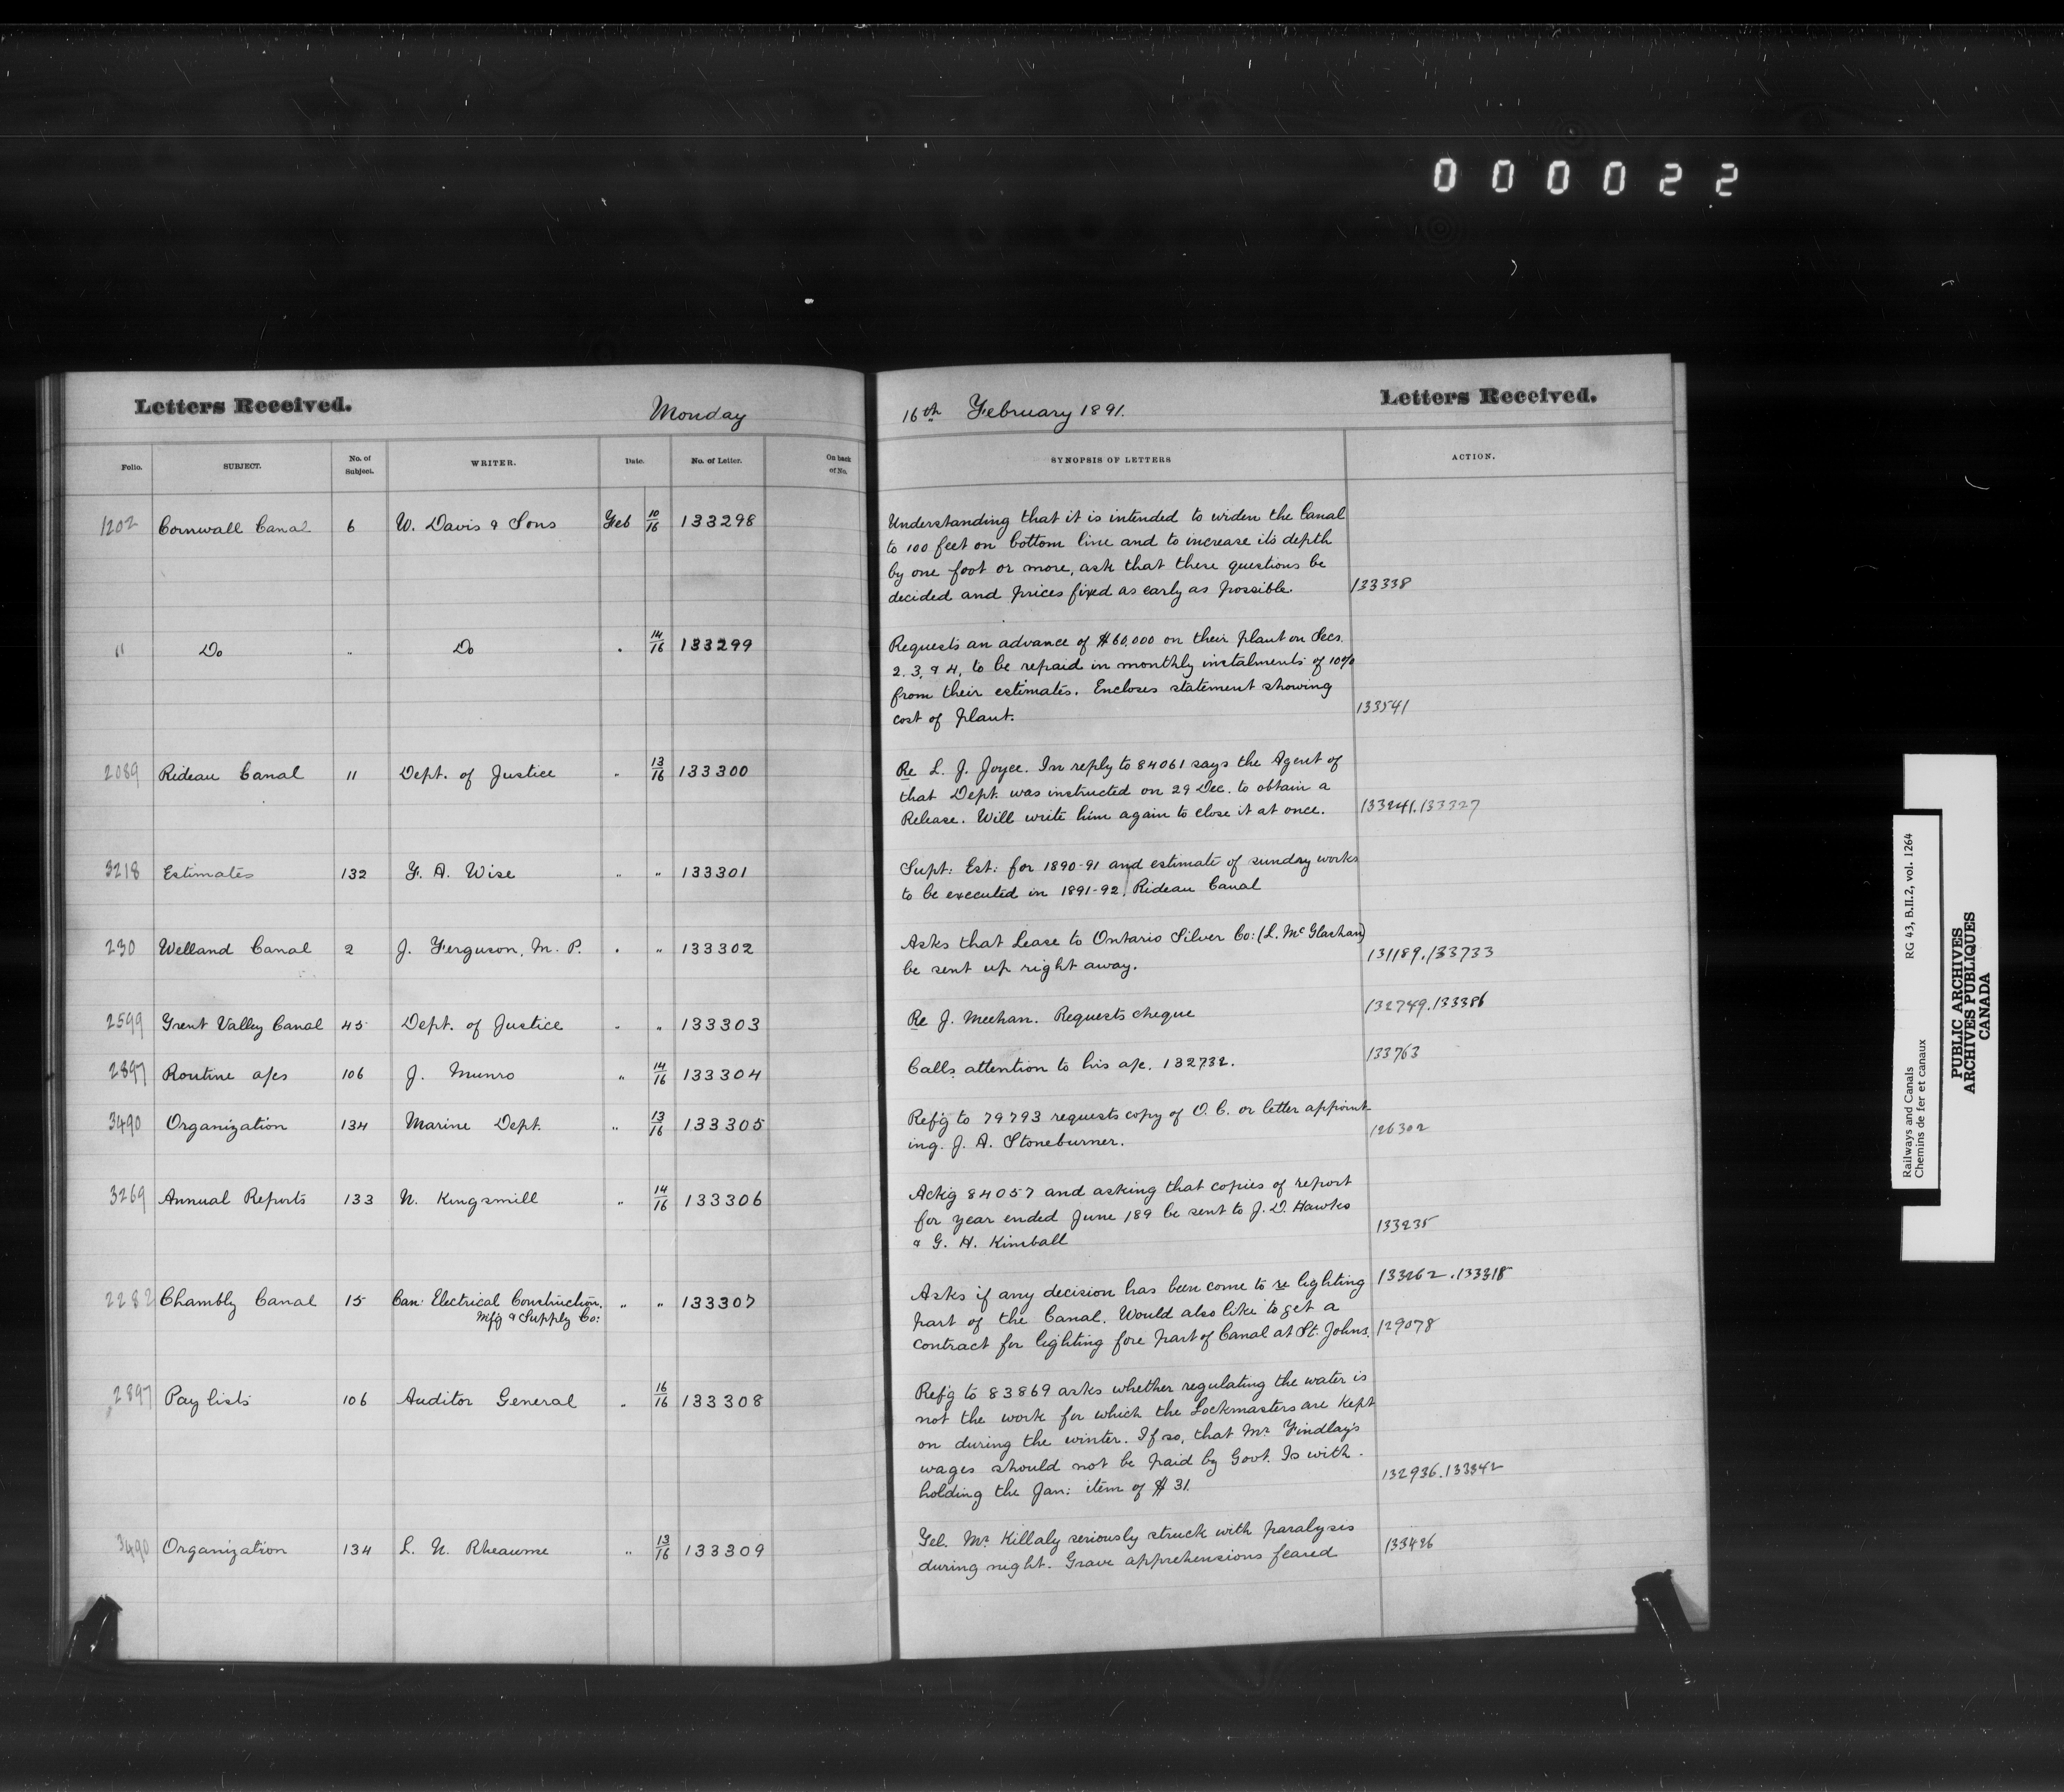 000022
Letters Received.
Monday
16th February 1891.
Letters Received.
Folio.
SUBJECT.
No. of Subject.
WRITER.
Date.
No. of Letter.
On back of No.
SYNOPSIS OF LETTERS
ACTION.
1202 Cornwall Canal 6 W. Davis & Sons Feb 10/16 133298
Understanding that it is intended to widen the Canal
to 100 feet on bottom line and to increase its depth
by one foot or more, ask that these questions be
decided and prices fixed as early as possible. 133338
" Do " Do " 14/16 133299
Requests an advance of $60,000 on their plant on Secs.
2. 3, & 4, to be repaid in monthly instalments of 10%
from their estimates. Encloses statement showing
cost of plant. 133541
2089 Rideau Canal 11 Dept. of Justice " 13/16 133300
Re L. J. Joyce. In reply to 84061 says the Agent of
that Dept. was instructed on 29 Dec. to obtain a
Release. Will write him again to close it at once. 133241.133327
3218 Estimates 132 F. A. Wise " " 133301
Supt: Est: for 1890-91 and estimate of sundry works
to be executed in 1891-92, Rideau Canal
230 Welland Canal 2 J. Ferguson, M. P. " " 133302
Asks that Lease to Ontario Silver Co: (L. McGlashan)
be sent up right away. 131189.133733
2599 Trent Valley Canal 45 Dept. of Justice " " 133303
Re J. Meehan. Requests cheque 132749.133386
2897 Routine a/cs 106 J. Munro " 14/16 133304
Calls attention to his a/c. 132732. 133763
3490 Organization 134 Marine Dept. " 13/16 133305
Ref'g to 79793 requests copy of O. C. or letter appoint-
ing. J. A. Stoneburner. 126302
3269 Annual Reports 133 N. Kingsmill " 14/16 133306
Ack'g 84057 and asking that copies of report
for year ended June 189 be sent to J. D. Hawks
& G. H. Kimball 133235
2282 Chambly Canal 15 Can: Electrical Construction. " " 133307
Mfg & Supply Co:
Asks if any decision has been come to re lighting 133262.133318
part of the Canal. Would also like to get a
contract for lighting fore part of Canal at St. Johns. 129078
2897 Pay lists 106 Auditor General " 16/16 133308
Ref'g to 83869 asks whether regulating the water is
not the work for which the Lockmasters are kept
on during the winter. If so, that Mr Findlay's
wages should not be paid by Govt. Is with-
holding the Jan: item of $31. 132936.133342
3490 Organization 134 L. N. Rheaume " 13/16 133309
Tel. Mr Killaly seriously struck with paralysis
during night. Grave apprehensions feared 133426
Railways and Canals
Chemins de fer et canaux
RG 43, B.II.2, vol. 1264
PUBLIC ARCHIVES
ARCHIVES PUBLIQUES
CANADA